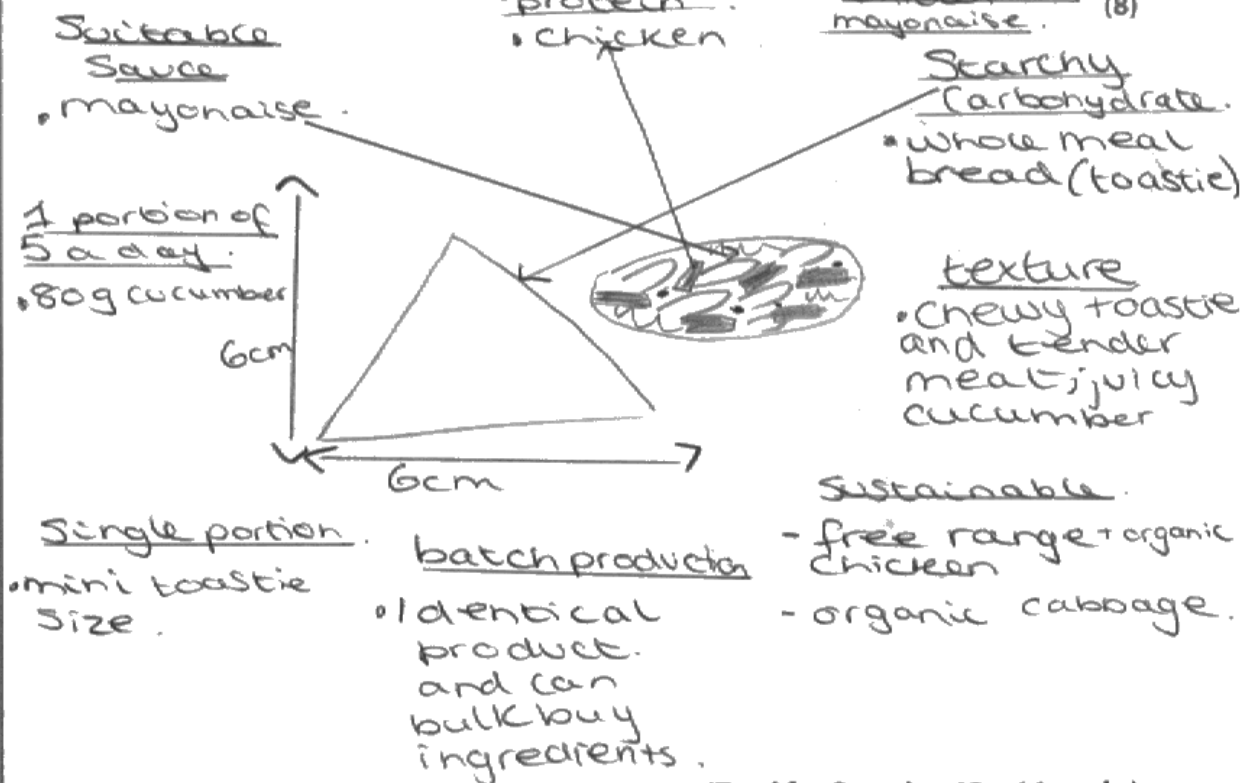 protein.
• chicken
mayonaise.
(8)
Suitable
Sauce
• mayonaise.
Starchy
Carbohydrate.
• whole meal
bread (toastie)
1 portion of
5 a day.
• 80g cucumber
6cm
6cm
texture
• chewy toastie
and tender
meat; juicy
cucumber
Single portion.
• mini toastie
size.
batch production
• Identical
product.
and can
bulk buy
ingredients.
Sustainable.
- free range + organic
chicken
- organic cabbage.